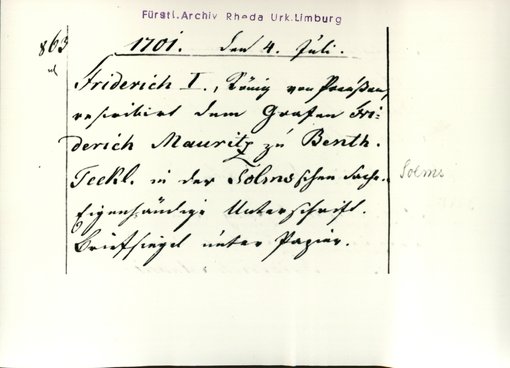 Fürstl.Archiv Rheda Urk.Limburg
863
1701. den 4. Juli.
Friderich I., König von Preußen,
rescribirt dem Grafen Fri-
derich Mauritz zu Benth.
Teckl. in der Solmsschen Sache.
Solms
Eigenhändige Unterschrift.
Briefsiegel unter Papier.